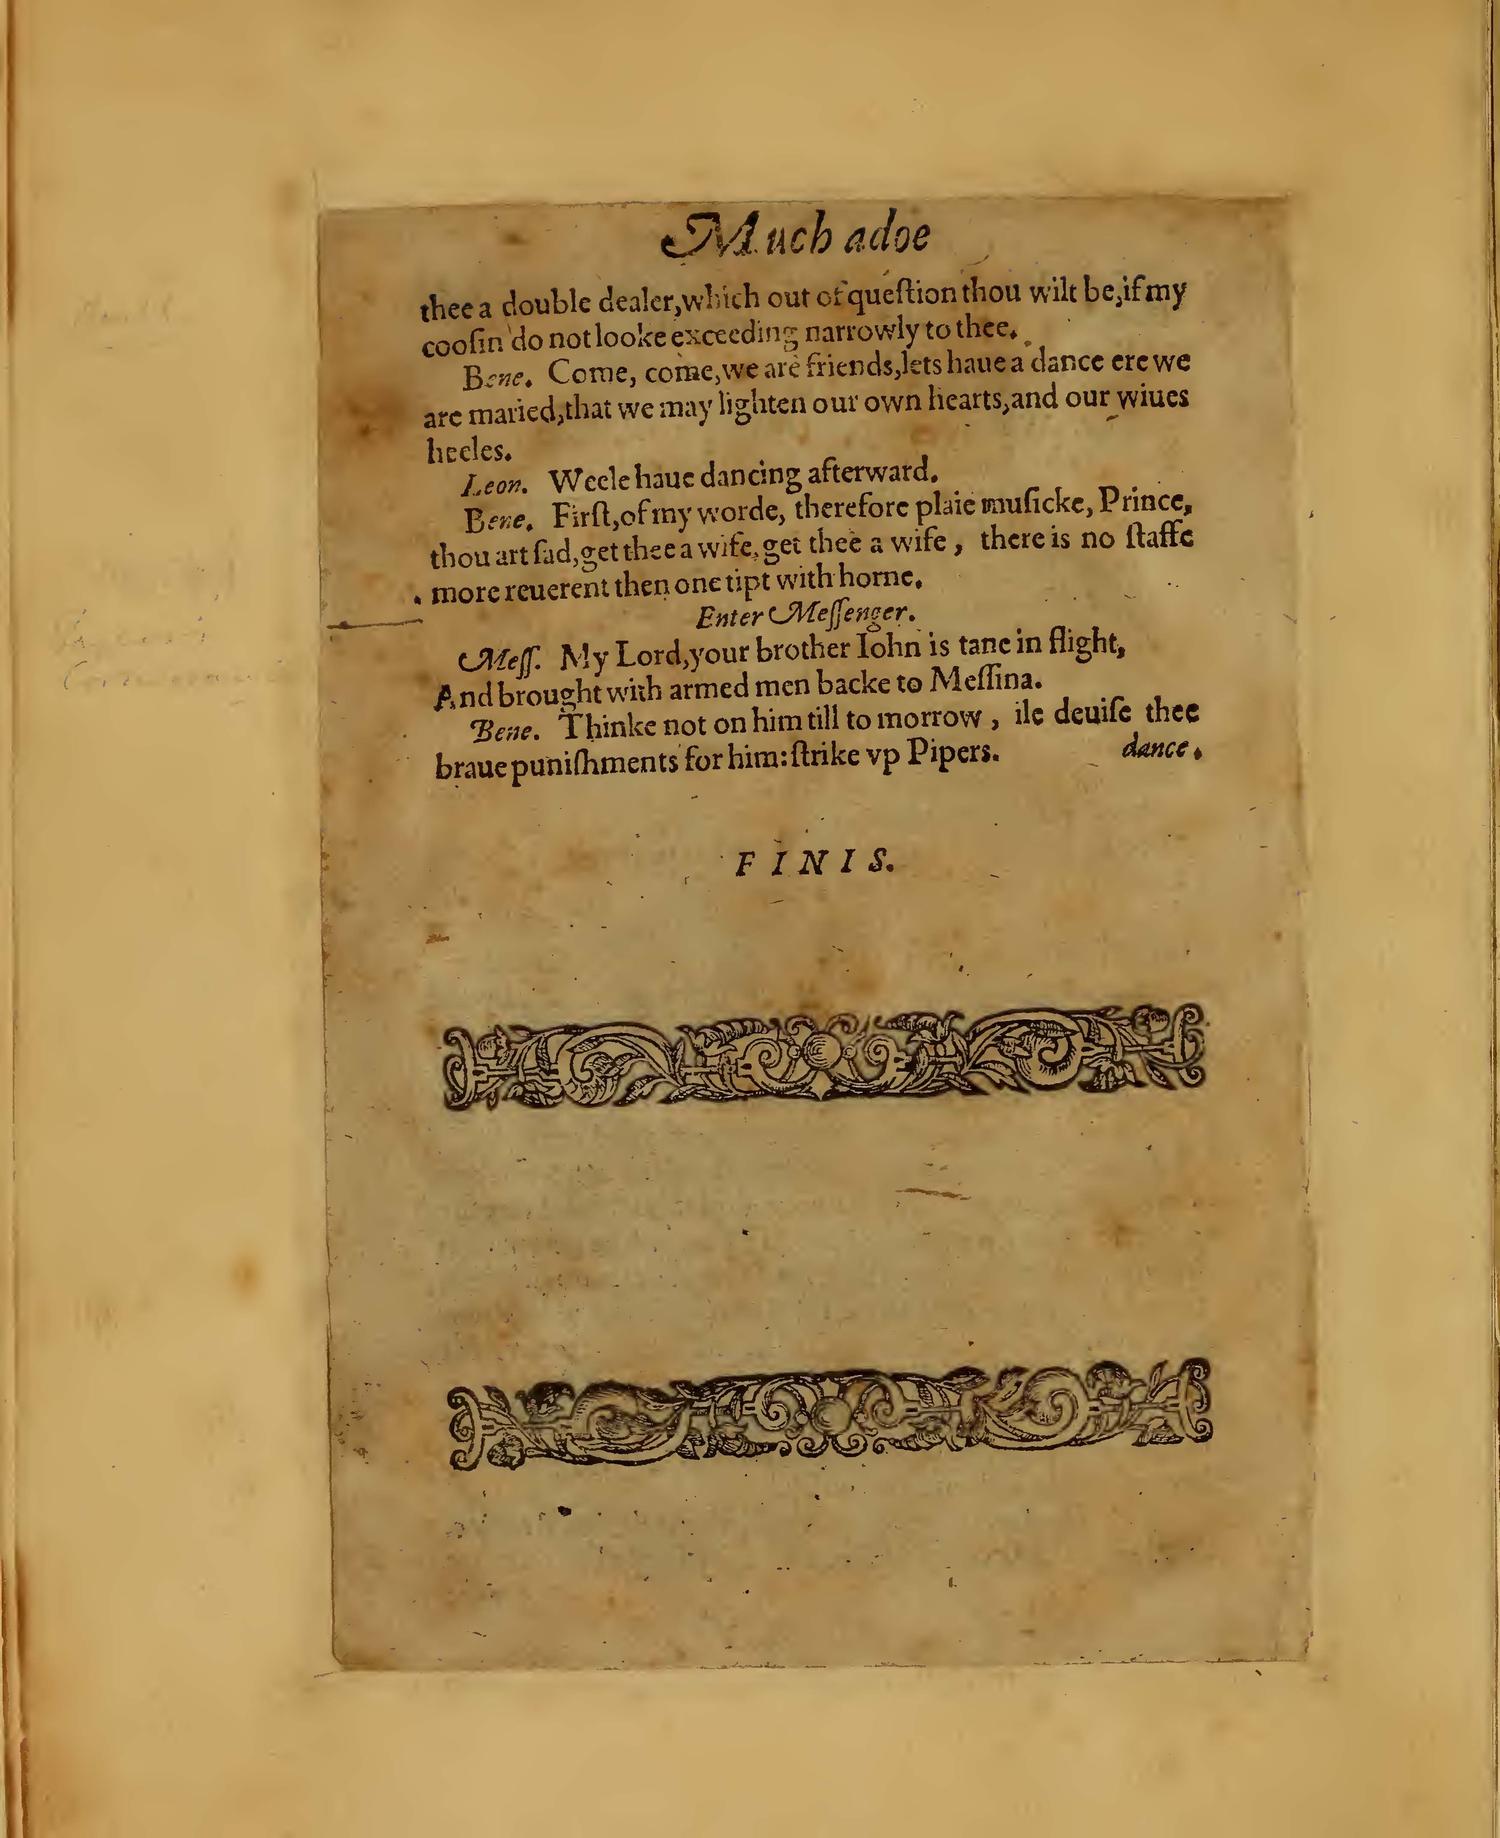 Much adoe
thee a double dealer, which out of queſtion thou wilt be, if my
cooſin do not looke exceeding narrowly to thee.
Bene. Come, come, we are friends, lets haue a dance ere we
are maried, that we may lighten our own hearts, and our wiues
heeles.
Leon. Weele haue dancing afterward.
Bene. Firſt, of my worde, therefore plaie muſicke, Prince,
thou art ſad, get thee a wife, get thee a wife, there is no ſtaffe
more reuerent then one tipt with horne.
Enter Meſſenger.
Meſſ. My Lord, your brother Iohn is tane in flight,
And brought with armed men backe to Meſſina.
Bene. Thinke not on him till to morrow, ile deuiſe thee
braue puniſhments for him: ſtrike vp Pipers. dance.
FINIS.